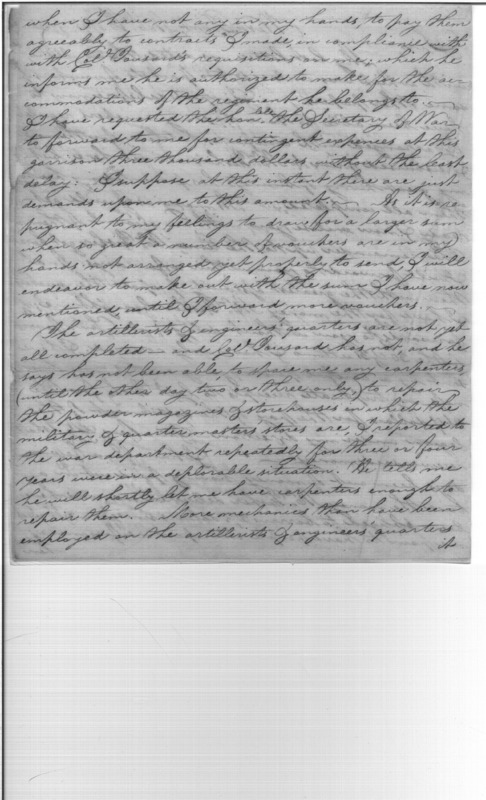 when I have not any in my hands, to pay them
agreeably to contracts I made, in compliance with
with Col.º Tousard's requisitions on me; which he
informs me he is authorized to make for the ac-
commodations of the regiment he belongs to.—
I have requested the hon.ble the Secretary of War
to forward to me for contingent expences at this
garrison three thousand dollars without the least
delay: I suppose at this instant there are just
demands upon me to this amount.— As it is re-
pugnant to my feelings to draw for a larger sum
when so great a number of vouchers are in my
hands not arranged yet properly to send, I will
endeavor to make out with the sum I have now
mentioned, until I forward more vouchers.
The artillerists & engineers' quarters are not yet
all completed— and Col.º Tousard has not, and he
says has not been able to spare me any carpenters
(until the other day two or three only) to repair
the powder magazines & storehouses in which the
military & quarter masters stores are, I reported to
the war department repeatedly for three or four
years were in a deplorable situation. He tells me
he will shortly let me have carpenters enough to
repair them. More mechanics than have been
employed on the artillerists & engineers' quarters
it